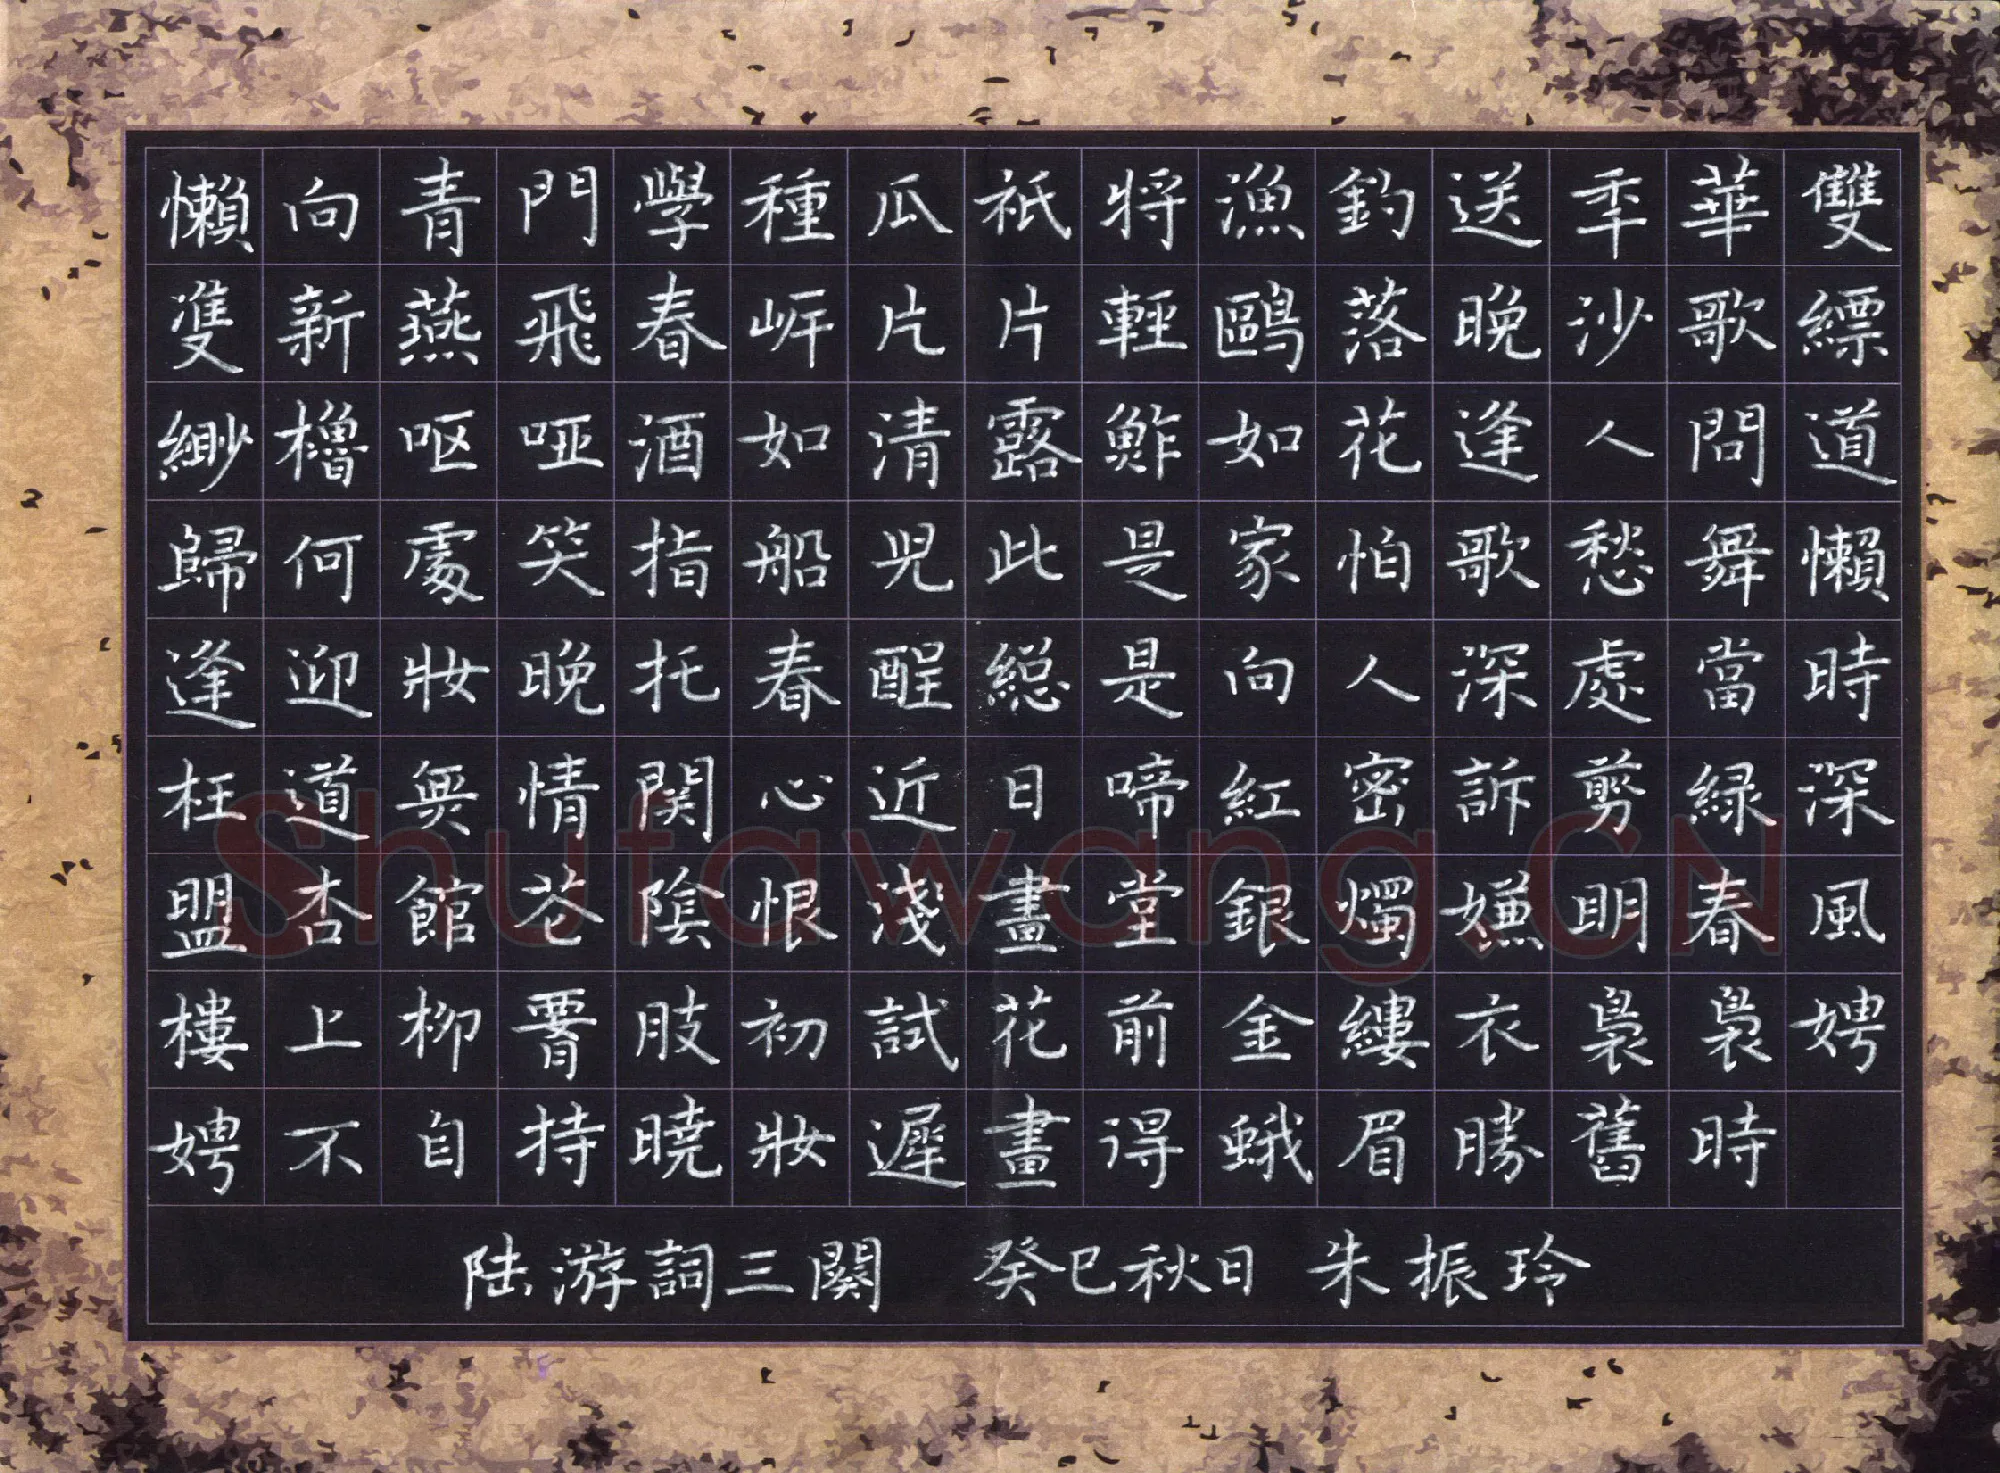 懶向青門學種瓜祇將漁釣送秊華雙
雙新燕飛春岸片片輕鷗落晚沙歌縹
緲櫓呕哑酒如清露鮓如花逢人問道
歸何處笑指船兒此是家怕歌愁舞懶
逢迎妝晚托春酲總是向人深處當時
枉道無情關心近日啼紅密訴剪綠深
盟杏館花陰恨淺畫堂銀燭嫌明春風
樓上柳腰肢初試花前金縷衣裊裊娉
娉不自持曉妝遲畫得蛾眉勝舊時
陆游詞三闋 癸巳秋日 朱振玲
Shufawang.CN